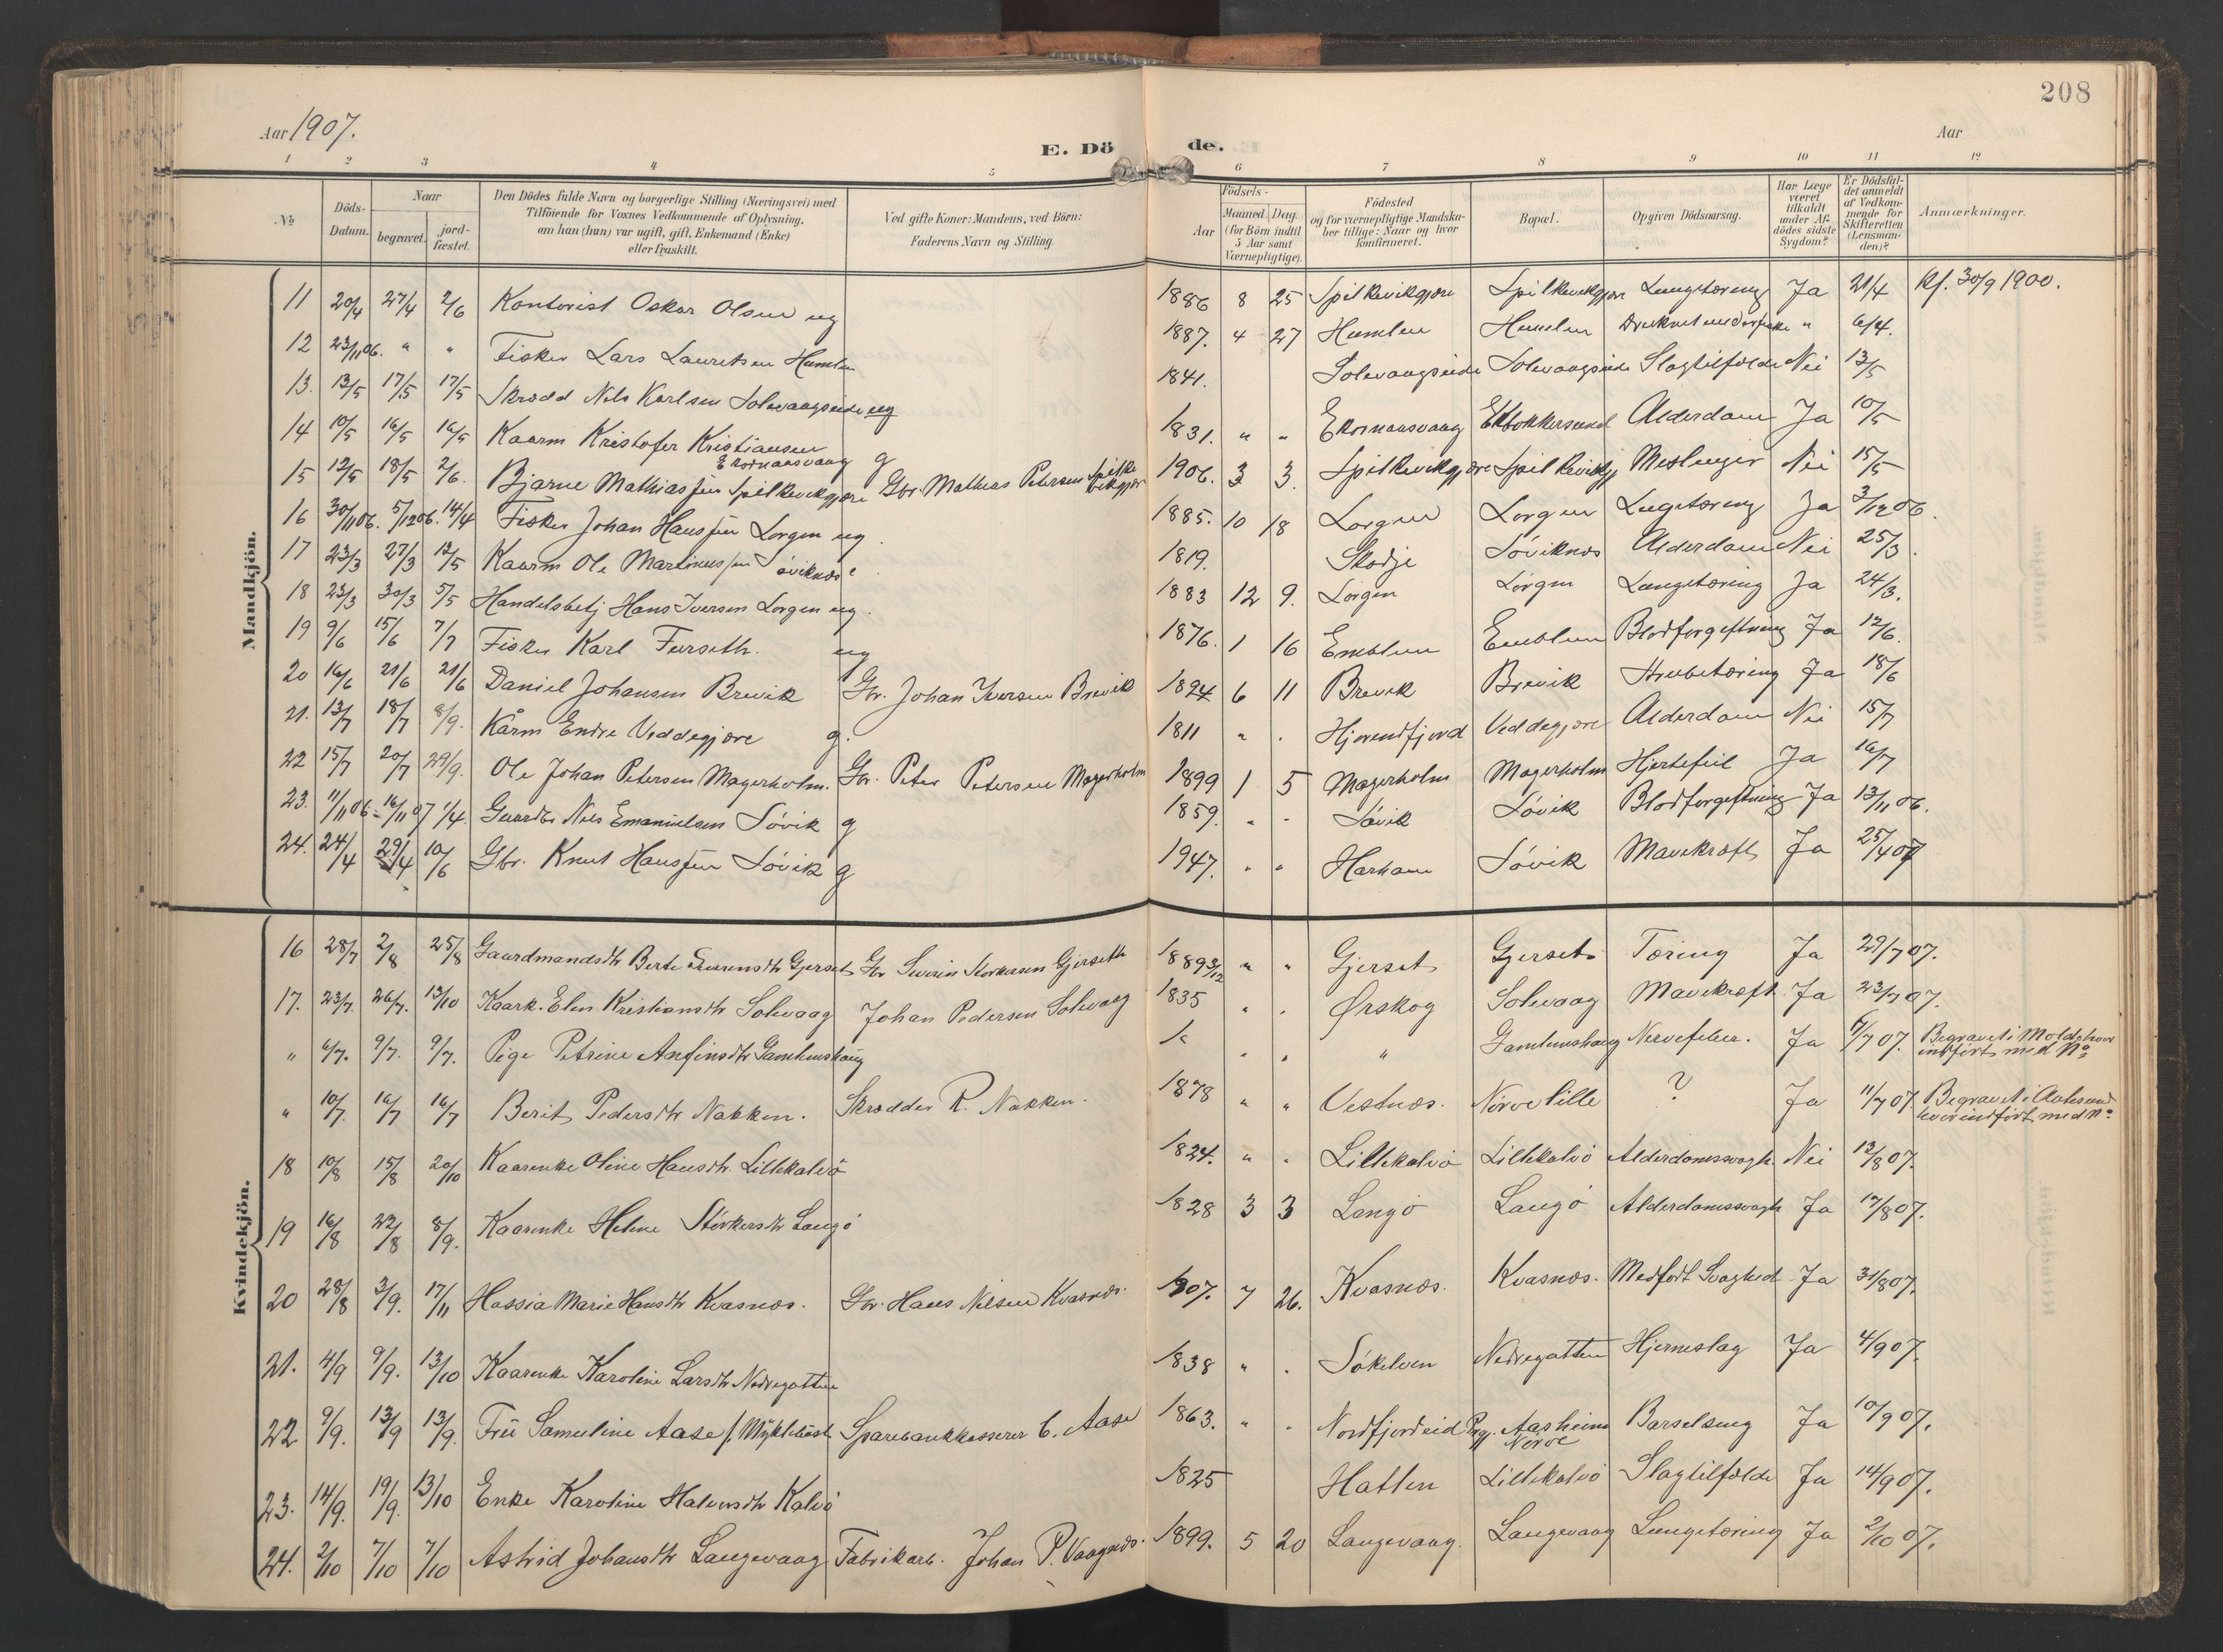 208
Aar 1907.
Aar
E. Dö de.
1 2 3 4 5 6 7 8 9 10 11 12
№
Döds-Datum.
Naar
begravet.
jord-fæstet.
Den Dödes fulde Navn og borgerlige Stilling (Næringsvei) med
Tilföiende for Voxnes Vedkommende af Oplysning,
om han (hun) var ugift, gift, Enkemand (Enke)
eller fraskilt.
Ved gifte Koner: Mandens, ved Börn:
Faderens Navn og Stilling.
Födsels-
Aar
Maaned. Dag.
(for Börn indtil
5 Aar samt
Værnepligtige).
Födested
og for værnepligtige Mandska-
ber tillige: Naar og hvor
konfirmeret.
Bopæl.
Opgiven Dödsaarsag.
Har Læge
været
tilkaldt
under Af-
dödes sidste
Sygdom?
Er Dödsfal-
det anmeldt
af Vedkom-
mende for
Skifteretten
(Lensman-
den)?
Anmærkninger.
Mandkjön.
11 20/4 27/4 2/6 Kontorist Oskar Olsen ug 1886 8 25 Spilkevikgjære Spilkevikgjære Lungetæring Ja 21/4 Kf. 30/9 1900.
12 23/11 06. " " Fisker Lars Lauritsen Humlen 1887. 4 27 Humlen Humlen "
13. 13/5 17/5 17/5 Skrædd Nils Karlsen Solevaagseide ug 1841. Solevaagseide Solevaagseide Slagtilfælde Nei 13/5
14 10/5 16/5 16/5 Kaarm Kristofer Kristiansen
Ekornaasvaag g 1831. " " Ekornaasvaag Alderdom Ja 10/5
15 12/5 18/5 2/6. Bjarne Mathiassen Spilkevikgjære Gbr. Mathias Petersen Spilkevikgjær 1906. 3 3. Spilkevikgjære Spilkevikgj Meslinger Nei 15/5
16 30/11 06. 5/12 06. 14/4 Fisker Johan Hanssen Lorgen ug. 1885. 10 18 Lorgen Lorgen Lugetæring Ja 3/12 06.
17 23/3 27/3 12/5 Kaarm Ole Martinussen Søviknæs e. 1819. Skodje Søviknæs Alderdom Nei 25/3.
18 23/3 30/3 5/5 Handelsbetj Hans Iversen Lorgen ug. 1883 12 9. Lorgen Lorgen Lungetæring Ja 24/3.
19 9/6 15/6 7/7 Fisker Karl Furseth. ug 1876. 1 16 Emblem Emblem Blodforgiftning Ja 12/6.
20 16/6 21/6 21/6 Daniel Johansen Brevik Gbr. Johan Iversen Brevik 1894 6 11 Brevik Brevik Ja 18/6
21. 13/7 18/7 8/9. Kårm Endre Veddegjære g. 1811 " . Hjørendfjord Veddegjære Alderdom Nei 15/7
22 15/7 20/7 29/9. Ole Johan Petersen Magerholm. Gbr. Peter Petersen Magerholm 1899 1 5 Magerholm Magerholm Hjertefeil Ja 16/7
23. 11/11 06 16/11 07 1/4. Gaardbr Nils Emanuelsen Søvik g 1859. " " Søvik Søvik Blodforgiftning Ja 13/11 06.
24. 24/4 29/4 10/6 Gbr. Knut Hanssen Søvik g 1947. " " Harham Søvik Mavekræft Ja 25/4 07
Kvindekjön.
16 28/7 2/8 25/8 Gaardmandsdtr Berte Gjerset Gbr Severin Gjerseth 1889 3/12 " " Gjerset Gjerset Tæring Ja 29/7 07.
17. 23/7. 26/7. 13/10 Kaark. Elen Kristiansdtr Solevaag Johan Pedersen Solevaag 1835 " . Ørskog Solevaag Mavekræft Ja 23/7 07.
" 6/7. 9/7. 9/7. Pige Petrine Anfinsdtr Gamlemshaug " . " Gamlemshaug Ja 6/7 07. Begravet i Molde hvor
indført med No
" 10/7. 16/7 16/7 Berit Pedersdtr Nakken. Skrædder R. Nakken. 1878 " " Vestnæs. Nørve lille ? Ja 11/7 07. Begravet i Aalesund
hvor indført med No
18 10/8 15/8 20/10 Kaarenke Oline Hansdtr. Lillekalvø 1824. " . Lillekalvø Lillekalvø Alderdomssvagh. Nei 12/8 07.
19 16/8 22/8 8/9. Kaarenke Helene Størkersdtr Langø 1828 3 3 Langø Langø Alderdomssvagh Ja 17/8 07.
20 28/8 3/9. 17/11 Hassia Marie Hansdtr Kvasnæs. Gbr. Hans Nilsen Kvasnæs. 1907. 7 26. Kvasnæs. Kvasnæs. Medfødt Svaghed Ja 31/8 07.
21. 4/9 9/9. 13/10 Kaarenke Karoline Larsdtr Nedregotten 1838 " . Søkelven Nedregotten Hjerneslag Ja 4/9 07.
22 9/9. 13/9 13/9. Frü Samuline Aase f. Myklebust Sparebankkasserer C. Aase 1863. " . Nordfjordeid Aasheim
Nørve Barselseng Ja 10/9 07.
23. 14/9. 19/9. 13/10 Enke Karoline Halvorsdtr Kalvø 1825 Hatlen Lillekalvø Slagtilfælde Ja 14/9 07.
24. 2/10 7/10 7/10 Astrid Johansdtr Langevaag Fabrikarb. Johan P. Vaagnæs. 1899. 5 20 Langevaag. Langevaag Lungetæring Ja 2/10 07.